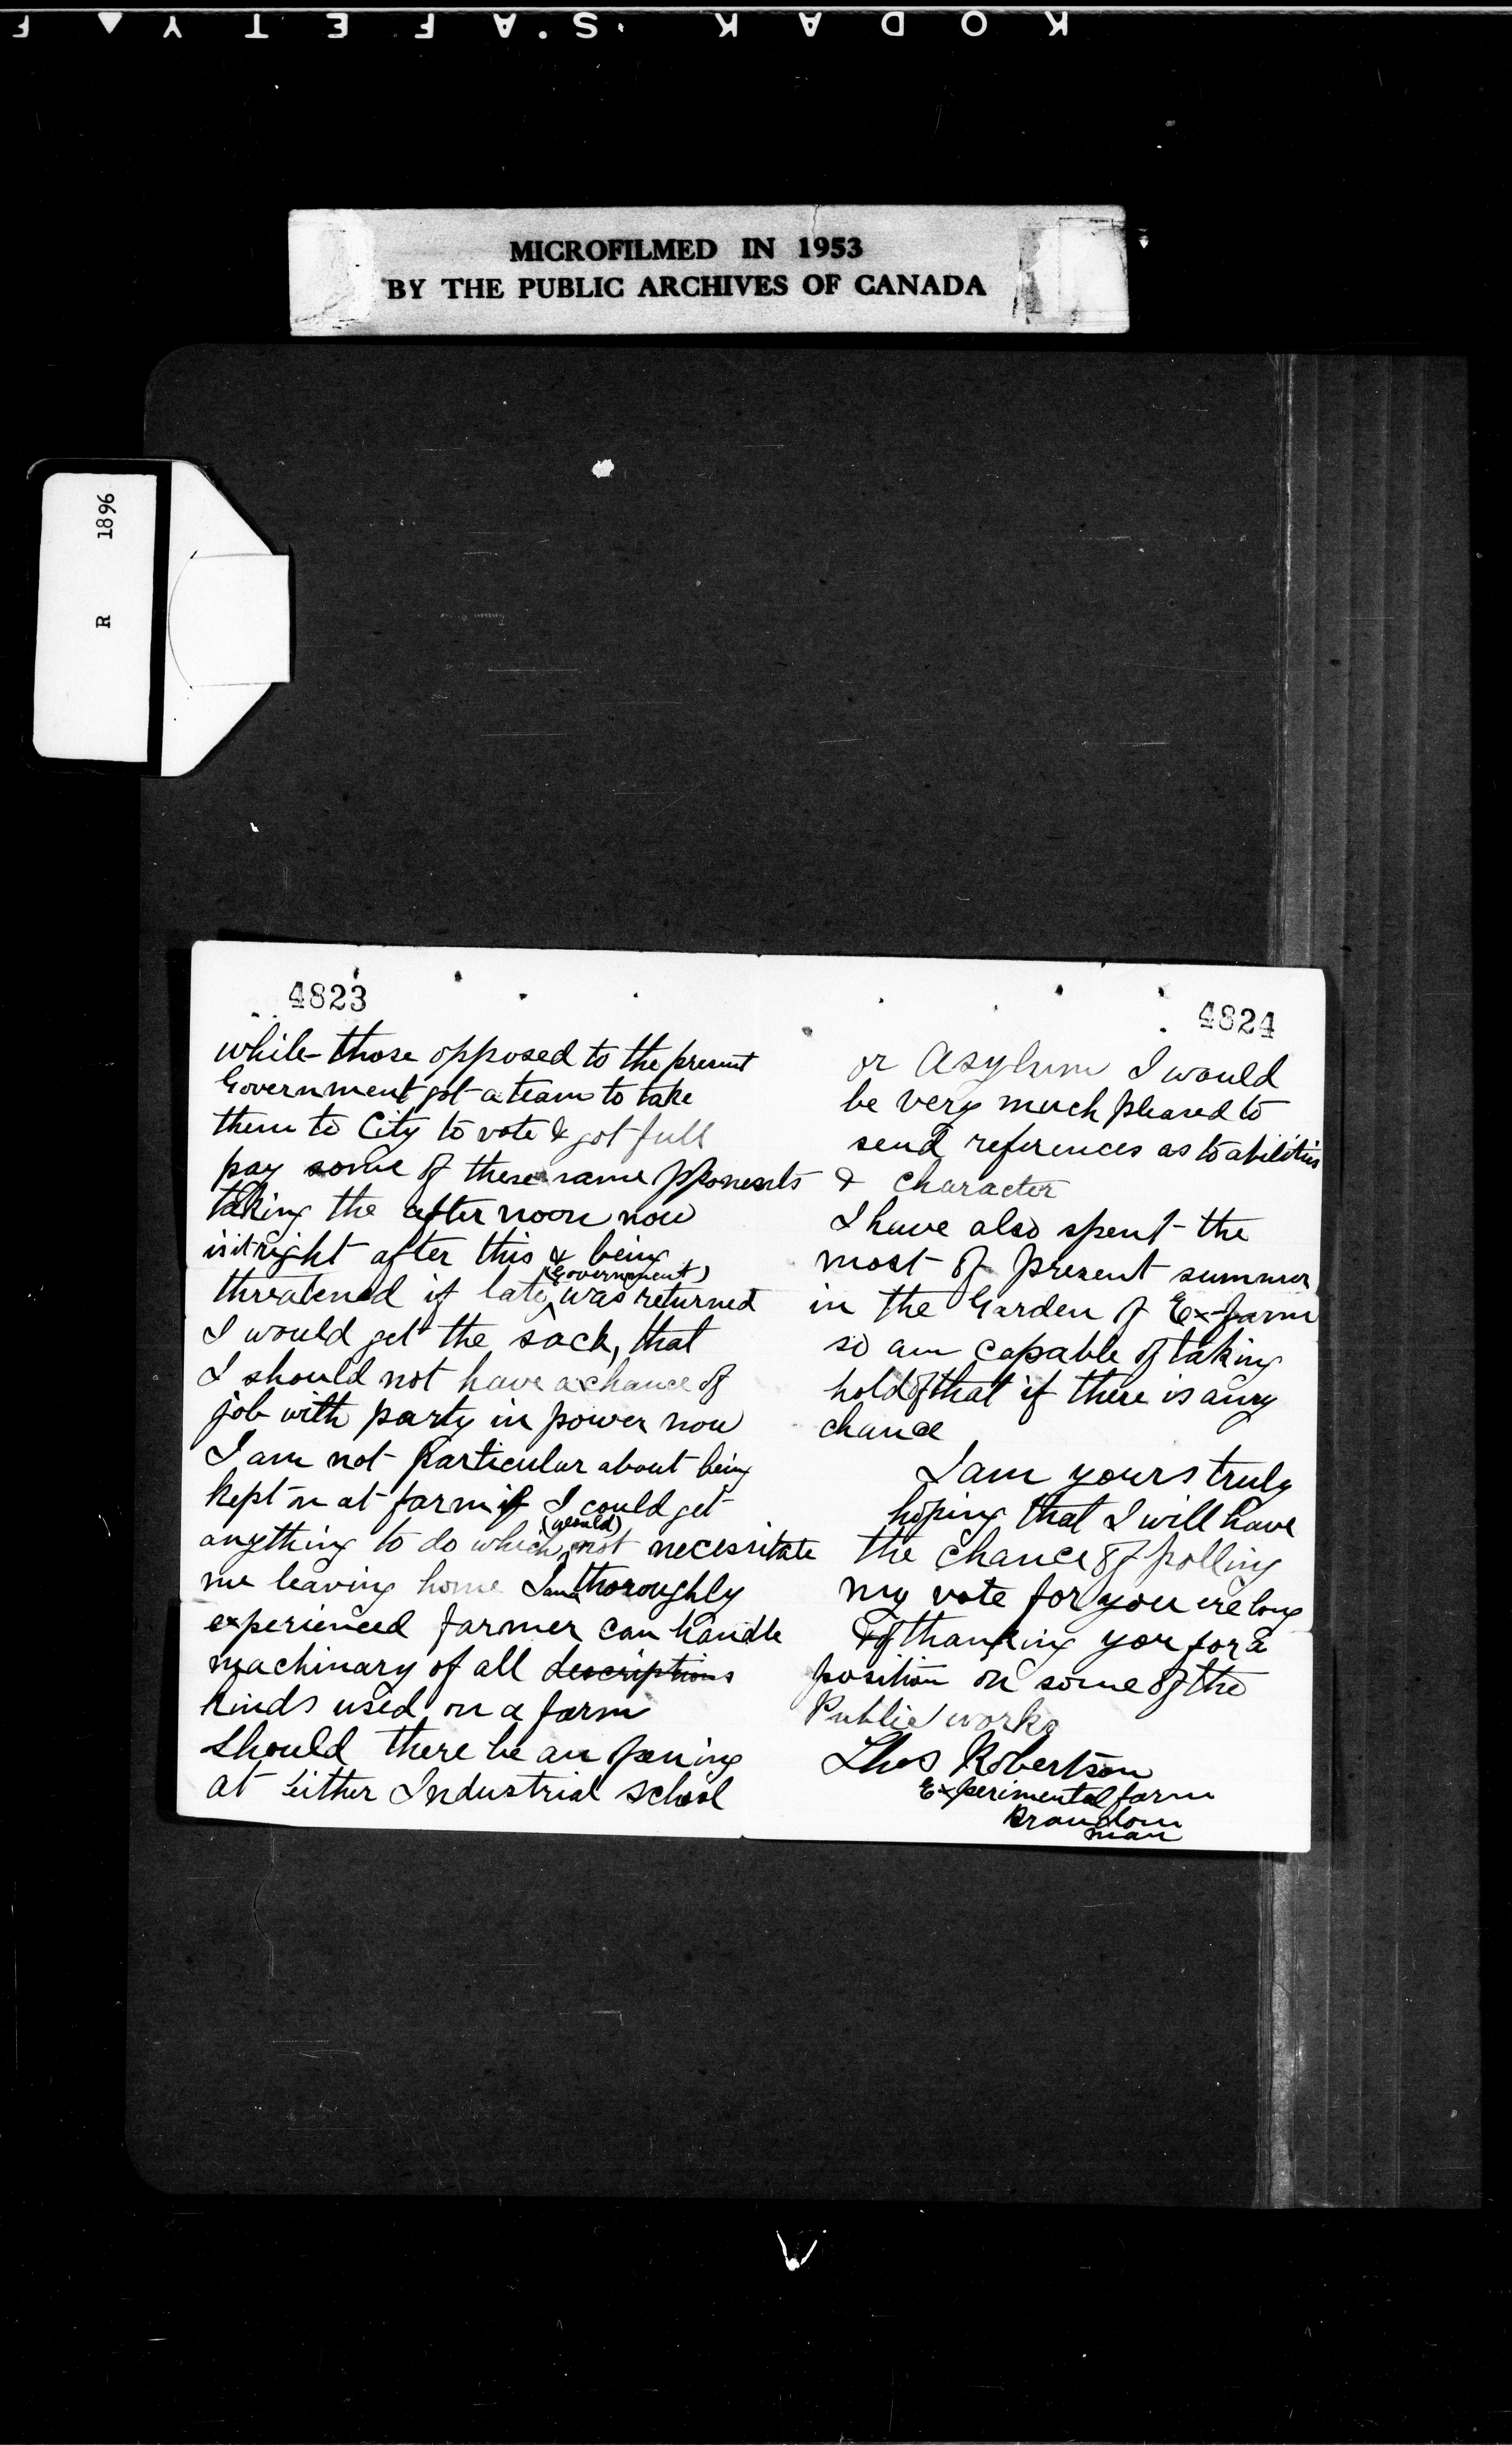 KODAK SAFETY F
MICROFILMED IN 1953
BY THE PUBLIC ARCHIVES OF CANADA
R 1896
4823
while those opposed to the present
Government got a team to take
them to City to vote & got full
pay some of these same opponents
taking the after noon now
is it right after this & being
(Government)
threatened if late was returned
I would get the sack, that
I should not have a chance of
job with party in power now
I am not particular about being
kept on at farm if I could get
(would)
anything to do which not necessitate
me leaving home I am thoroughly
experienced farmer can handle
machinary of all descriptions
kinds used on a farm
Should there be an opening
at either Industrial school
4824
or Asylum I would
be very much pleased to
send references as to abilities
& character
I have also spent the
most of present summer
in the Garden of Ex-farm
so am capable of taking
hold of that if there is any
chance
I am yours truly
hoping that I will have
the chance of polling
my vote for you ere long
& of thanking you for a
position on some of the
Public works
Thos Robertson
Experimental farm
Brandon
Man